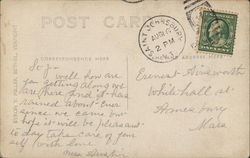 POST CARD
CORRESPONDENCE HERE
SAINT JOHNSBURY
AUG
2 PM
VT.
well how are
you getting along we
are here and it has
rained about ever
since we came but
hope it will be pleasant
to day take care of your
self with love
Ernest Ainsworth
Whitehall st
Amesbury
Mass